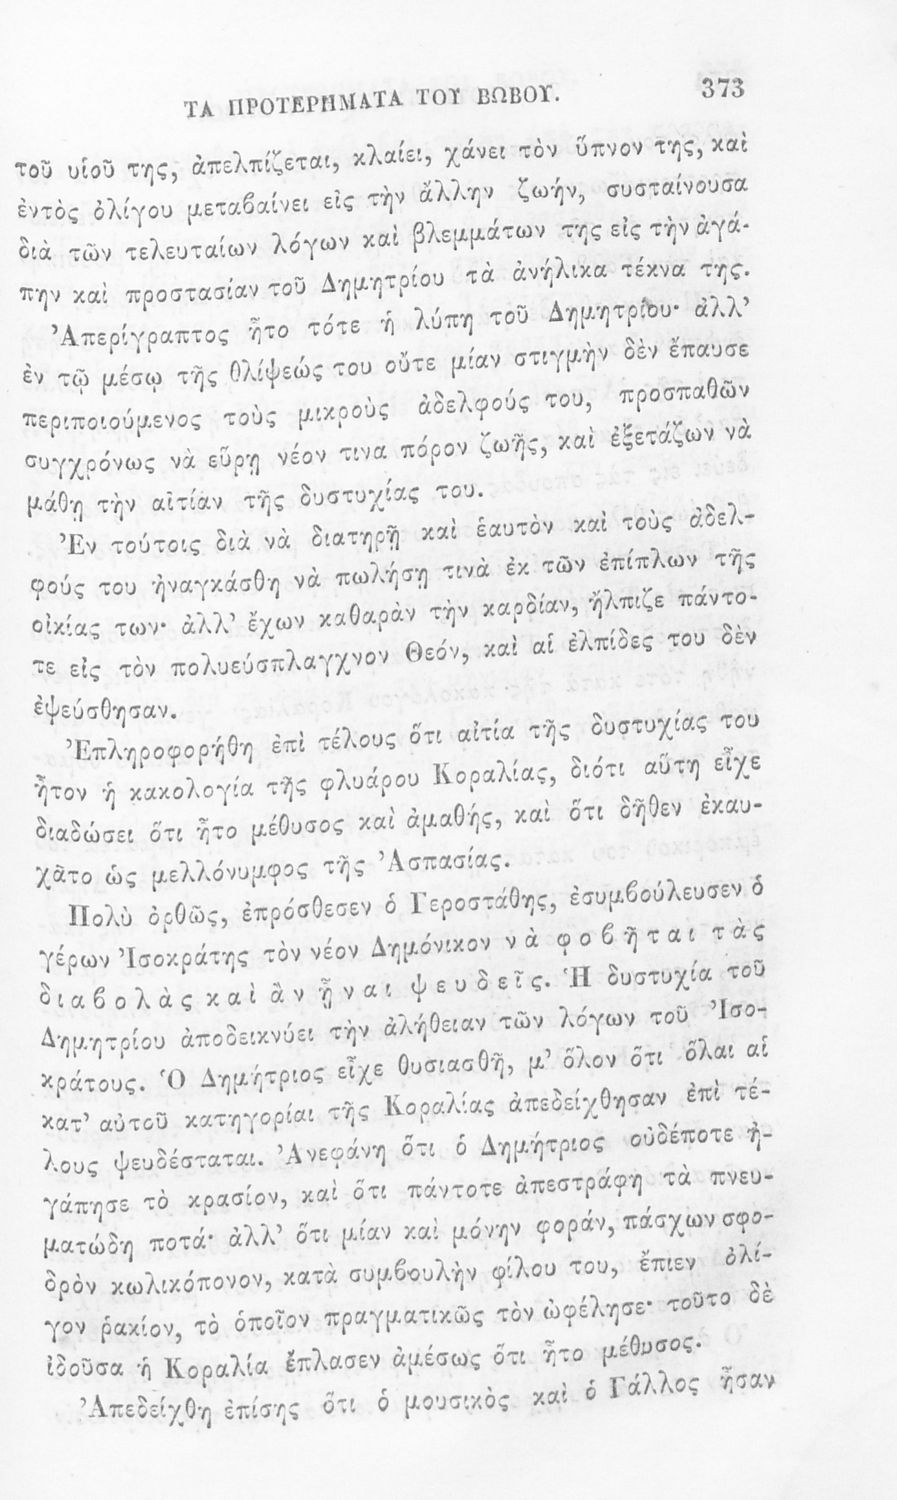 ΤΑ ΠΡΟΤΕΡΗΜΑΤΑ ΤΟΥ ΒΩΒΟΥ. 373
τοῦ υἱοῦ της, ἀπελπίζεται, κλαίει, χάνει τὸν ὕπνον της, καὶ
ἐντὸς ὀλίγου μεταβαίνει εἰς τὴν ἄλλην ζωήν, συσταίνουσα
διὰ τῶν τελευταίων λόγων καὶ βλεμμάτων της εἰς τὴν ἀγά-
πην καὶ προστασίαν τοῦ Δημητρίου τὰ ἀνήλικα τέκνα της.
Ἀπερίγραπτος ἦτο τότε ἡ λύπη τοῦ Δημητρίου· ἀλλ’
ἐν τῷ μέσῳ τῆς θλίψεώς του οὔτε μίαν στιγμὴν δὲν ἔπαυσε
περιποιούμενος τοὺς μικροὺς ἀδελφούς του, προσπαθῶν
συγχρόνως νὰ εὕρῃ νέον τινα πόρον ζωῆς, καὶ ἐξετάζων νὰ
μάθῃ τὴν αἰτίαν τῆς δυστυχίας του.
Ἐν τούτοις διὰ νὰ διατηρῇ καὶ ἑαυτὸν καὶ τοὺς ἀδελ-
φούς του ἠναγκάσθη νὰ πωλήσῃ τινὰ ἐκ τῶν ἐπίπλων τῆς
οἰκίας των· ἀλλ’ ἔχων καθαρὰν τὴν καρδίαν, ἤλπιζε πάντο-
τε εἰς τὸν πολυεύσπλαγχνον Θεόν, καὶ αἱ ἐλπίδες του δὲν
ἐψεύσθησαν.
Ἐπληροφορήθη ἐπὶ τέλους ὅτι αἰτία τῆς δυστυχίας του
ἦτον ἡ κακολογία τῆς φλυάρου Κοραλίας, διότι αὕτη εἶχε
διαδώσει ὅτι ἦτο μέθυσος καὶ ἀμαθής, καὶ ὅτι δῆθεν ἐκαυ-
χᾶτο ὡς μελλόνυμφος τῆς Ἀσπασίας.
Πολὺ ὀρθῶς, ἐπρόσθεσεν ὁ Γεροστάθης, ἐσυμβούλευσεν ὁ
γέρων Ἰσοκράτης τὸν νέον Δημόνικον νὰ φοβῆται τὰς
διαβολὰς καὶ ἂν ᾖναι ψευδεῖς. Ἡ δυστυχία τοῦ
Δημητρίου ἀποδεικνύει τὴν ἀλήθειαν τῶν λόγων τοῦ Ἰσο-
κράτους. Ὁ Δημήτριος εἶχε θυσιασθῆ, μ’ ὅλον ὅτι ὅλαι αἱ
κατ’ αὐτοῦ κατηγορίαι τῆς Κοραλίας ἀπεδείχθησαν ἐπὶ τέ-
λους ψευδέσταται. Ἀνεφάνη ὅτι ὁ Δημήτριος οὐδέποτε ἠ-
γάπησε τὸ κρασίον, καὶ ὅτι πάντοτε ἀπεστράφη τὰ πνευ-
ματώδη ποτά· ἀλλ’ ὅτι μίαν καὶ μόνην φοράν, πάσχων σφο-
δρὸν κωλικόπονον, κατὰ συμβουλὴν φίλου του, ἔπιεν ὀλί-
γον ῥακίον, τὸ ὁποῖον πραγματικῶς τὸν ὠφέλησε· τοῦτο δὲ
ἰδοῦσα ἡ Κοραλία ἔπλασεν ἀμέσως ὅτι ἦτο μέθυσος.
Ἀπεδείχθη ἐπίσης ὅτι ὁ μουσικὸς καὶ ὁ Γάλλος ἦσαν